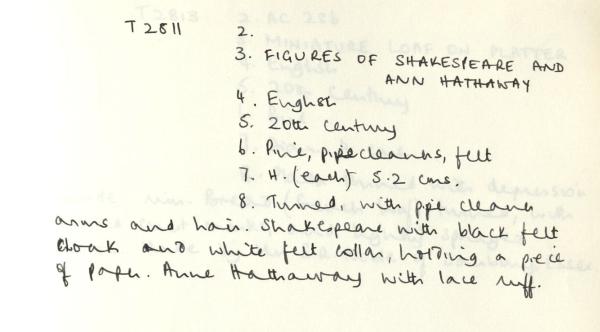 T2811 2.
3. FIGURES OF SHAKESPEARE AND
ANN HATHAWAY
4. English
5. 20th century
6. Pine, pipecleaners, felt
7. H. (each) 5.2 cms.
8. Turned, with pipe cleaner
arms and hair. Shakespeare with black felt
cloak and white felt collar, holding a piece
of paper. Anne Hathaway with lace ruff.